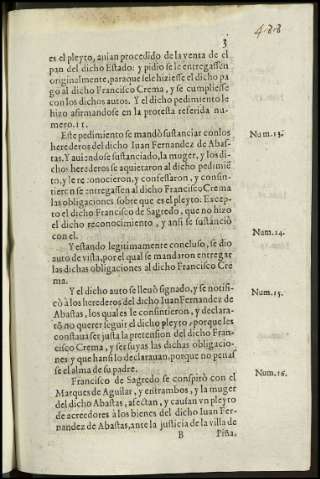 488
3
es el pleyto, auian procedido de la venta de el
pan del dicho Estado: y pidio se le entregassen
originalmente, para que se le hiziesse el dicho pa
go al dicho Francisco Crema, y se cumpliesse
con los dichos autos. Y el dicho pedimiento le
hizo afirmandose en la protesta referida nu-
mero. 11.
Este pedimiento se mandò sustanciar con los
herederos del dicho Iuan Fernandez de Abas-
tas. Y auiendose sustanciado, la muger, y los di-
chos herederos se aquietaron al dicho pedimiẽ
to, y le reconocieron, y confessaron, y consin-
tieron se entregassen al dicho Francisco Crema
las obligaciones sobre que es el pleyto. Excep-
to el dicho Francisco de Sagredo, que no hizo
el dicho reconocimiento, y ansi se sustanciò
con el.
Num. 13.
Y estando legitimamente concluso, se dio
auto de vista, por el qual se mandaron entregar
las dichas obligaciones al dicho Francisco Cre
ma.
Num. 14.
Y el dicho auto se lleuò signado, y se notifi-
cò a los herederos del dicho Iuan Fernandez de
Abastas, los quales le consintieron, y declara-
rò no querer seguir el dicho pleyto, porque les
constaua ser justa la pretension del dicho Fran-
cisco Crema, y ser suyas las dichas obligacio-
nes y que hansi lo declarauan, porque no penas-
se el alma de su padre.
Num. 15.
Francisco de Sagredo se conspirò con el
Marques de Aguilar, y entrambos, y la muger
del dicho Abastas, afectan, y causan vn pleyto
de acreedores à los bienes del dicho Iuan Fer-
nandez de Abastas, ante la justicia de la villa de
Num. 16.
B
Piña.